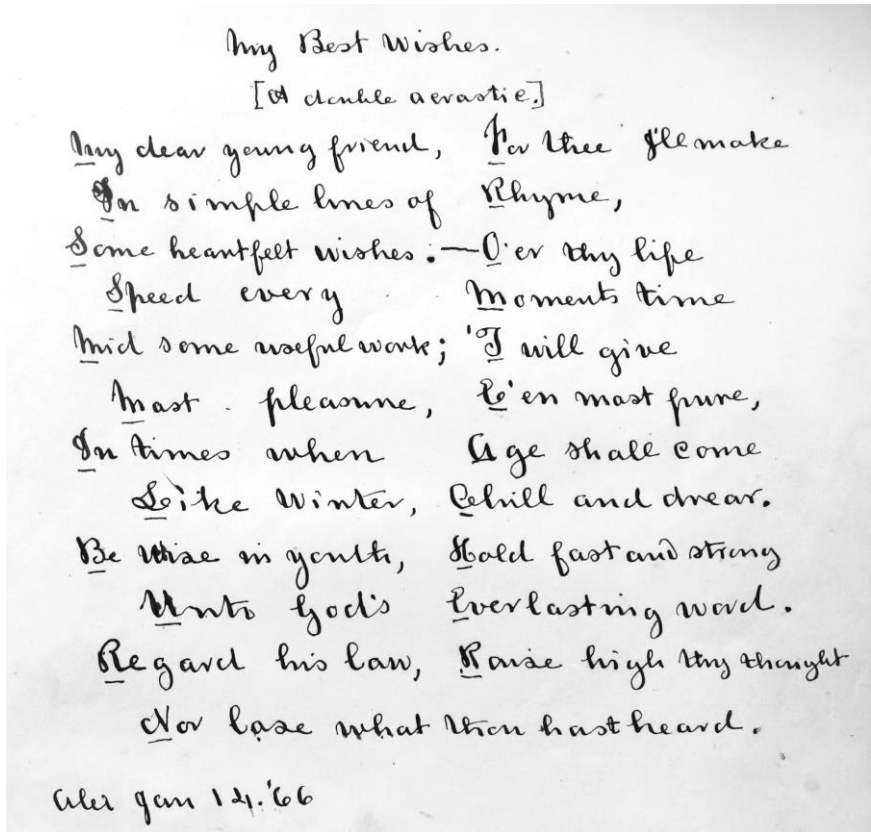 My Best Wishes.
[A double acrostic.]
My dear young friend, For thee I'le make
In simple lines of Rhyme,
Some heartfelt wishes:—O'er thy life
Speed every Moments time
Mid some useful work; 'T will give
Most pleasure, E'en most pure,
In times when Age shall come
Like Winter, Chill and drear.
Be wise in youth, Hold fast and strong
Unto God's Everlasting word.
Regard his law, Raise high thy thought
Nor lose what thou hast heard.
Jan 14. '66